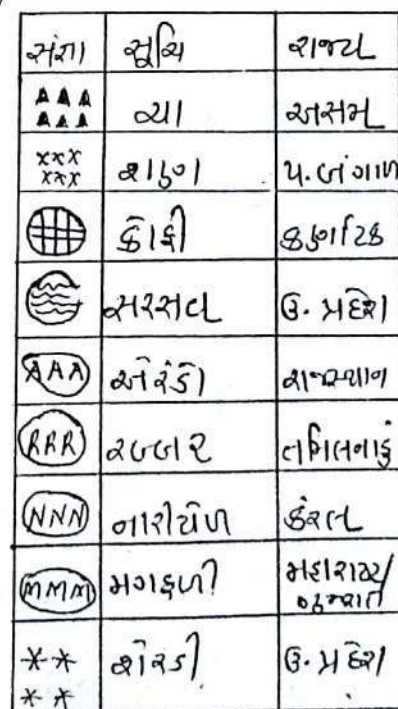 સંજ્ઞા સૂચિ રાજ્ય
ચા અસમ
xxx
xxx શણ પ. બંગાળ
કોફી કર્ણાટક
સરસવ ઉ. પ્રદેશ
AAA એરંડો રાજસ્થાન
RRR રબ્બર તમિલનાડુ
NNN નારીયેળ કેરલ
MMM મગફળી મહારાષ્ટ્ર/
ગુજરાત
શેરડી ઉ. પ્રદેશ